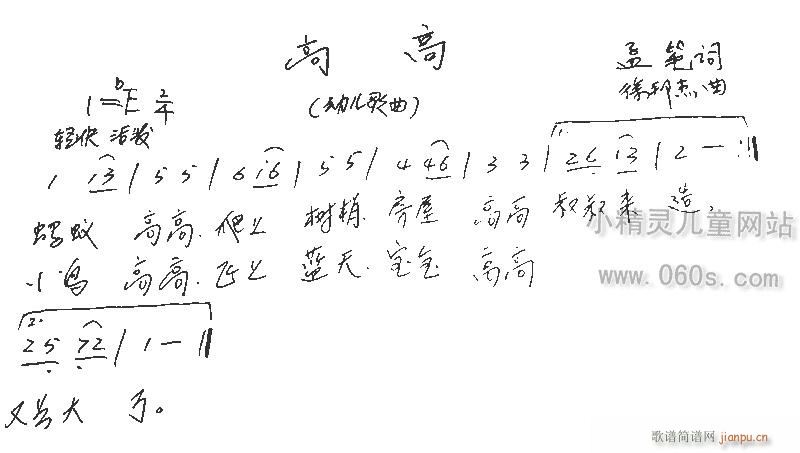 高 高
孟 笔词
1=♭E 2/4 (幼儿歌曲) 徐邦杰曲
轻快 活发
1 13 | 5 5 | 6 i6 | 5 5 | 4 46 | 3 3 | 1. 26 13 | 2 — :||
蚂蚁 高高.爬上 树梢. 房屋 高高 叔叔来 造,
小鸟 高高.飞上 蓝天.宝宝 高高
小精灵儿童网站
www.060s.com
2. 25 72 | 1 — ||
又长大 了。
歌谱简谱网
jianpu.cn